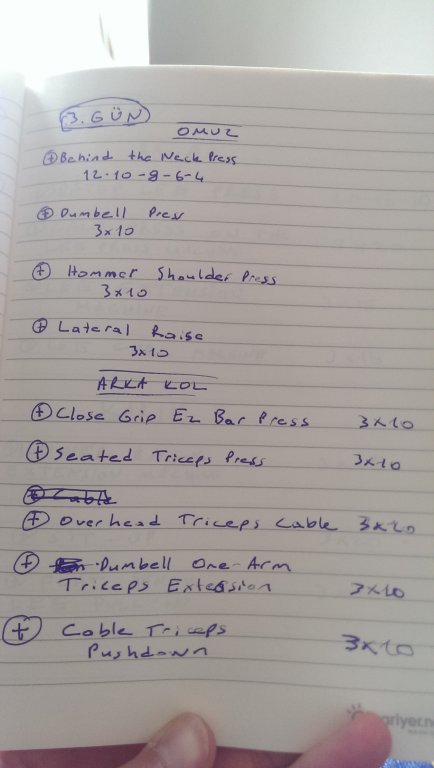 3. GÜN
OMUZ
+ Behind the Neck Press
12-10-8-6-4
+ Dumbell Press
3x10
+ Hommer Shoulder Press
3x10
+ Lateral Raise
3x10
ARKA KOL
+ Close Grip Ez Bar Press 3x10
+ Seated Triceps Press 3x10
+ Cable
+ Overhead Triceps Cable 3x10
+ Dumbell One-Arm
Triceps Extension 3x10
+ Cable Triceps
Pushdown 3x10